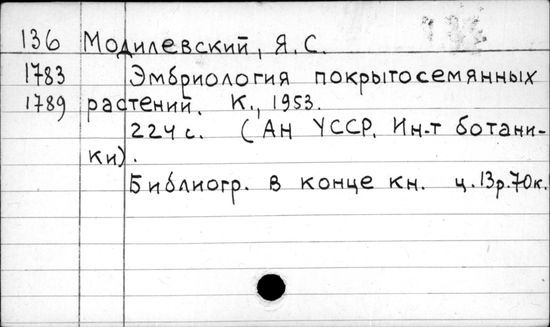 136 Модилевский, Я. С.
1783 Эмбриология покрытосемянных
1789 растений. К., 1953.
224 с. (АН УССР. Ин-т ботани-
ки).
Библиогр. в конце кн. ц. 13р. 70к.